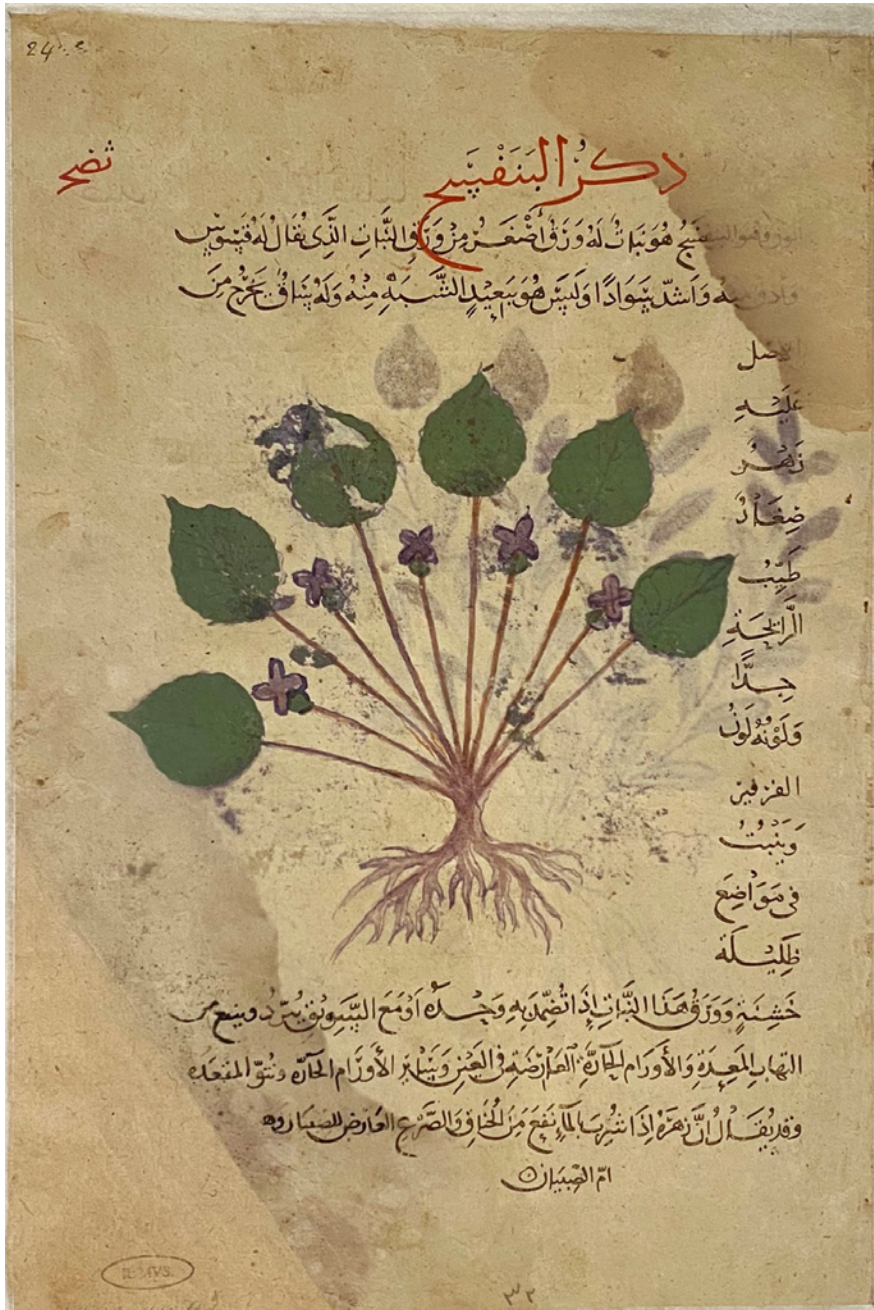 24
ذكر البنفسج
نضح
هو نبات له ورق أصغر من ورق النبات الذي يقال له قيسوس
وادق منه واشد سوادا وليس هو ببعيد الشبه منه وله ساق يخرج من
الاصل
عليه
زهر
صغار
طيب
الرائحة
جدا
ولونه لون
الفرفير
وينبت
في مواضع
ظليلة
خشنة وورق هذا النبات إذا تضمد به وحده او مع السويق يبرد وينفع من
التهاب المعدة والأورام الحارة العارضة في العين وسائر الأورام الحارة ونتو المقعدة
وقد يقال ان زهره إذا شرب بالماء نفع من الخناق والصرع العارض للصبيان وهو
ام الصبيان
٣٢